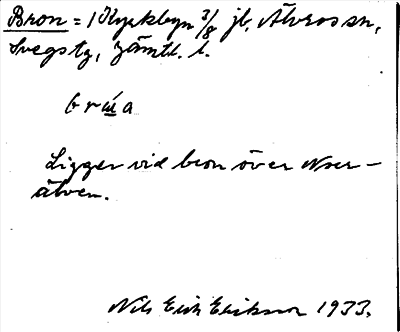 Bron = i Kyrkbyn 3/8 jb, Älvros sn,
Svegs tg, Jämtl. l.
brùa
Ligger vid bron över Noer-
älven.
Nils Erik Eriksson 1933.